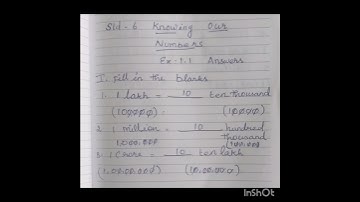 Std - 6 Knowing Our
Numbers
Ex - 1.1 Answers
I. Fill in the blanks
1. 1 lakh = 10 ten thousand
(100000) (10000)
2. 1 million = 10 hundred
thousand
1,000,000 100,000
3. 1 Crore = 10 ten lakh
(1,00,00,000) (10,00,000)
InShOt